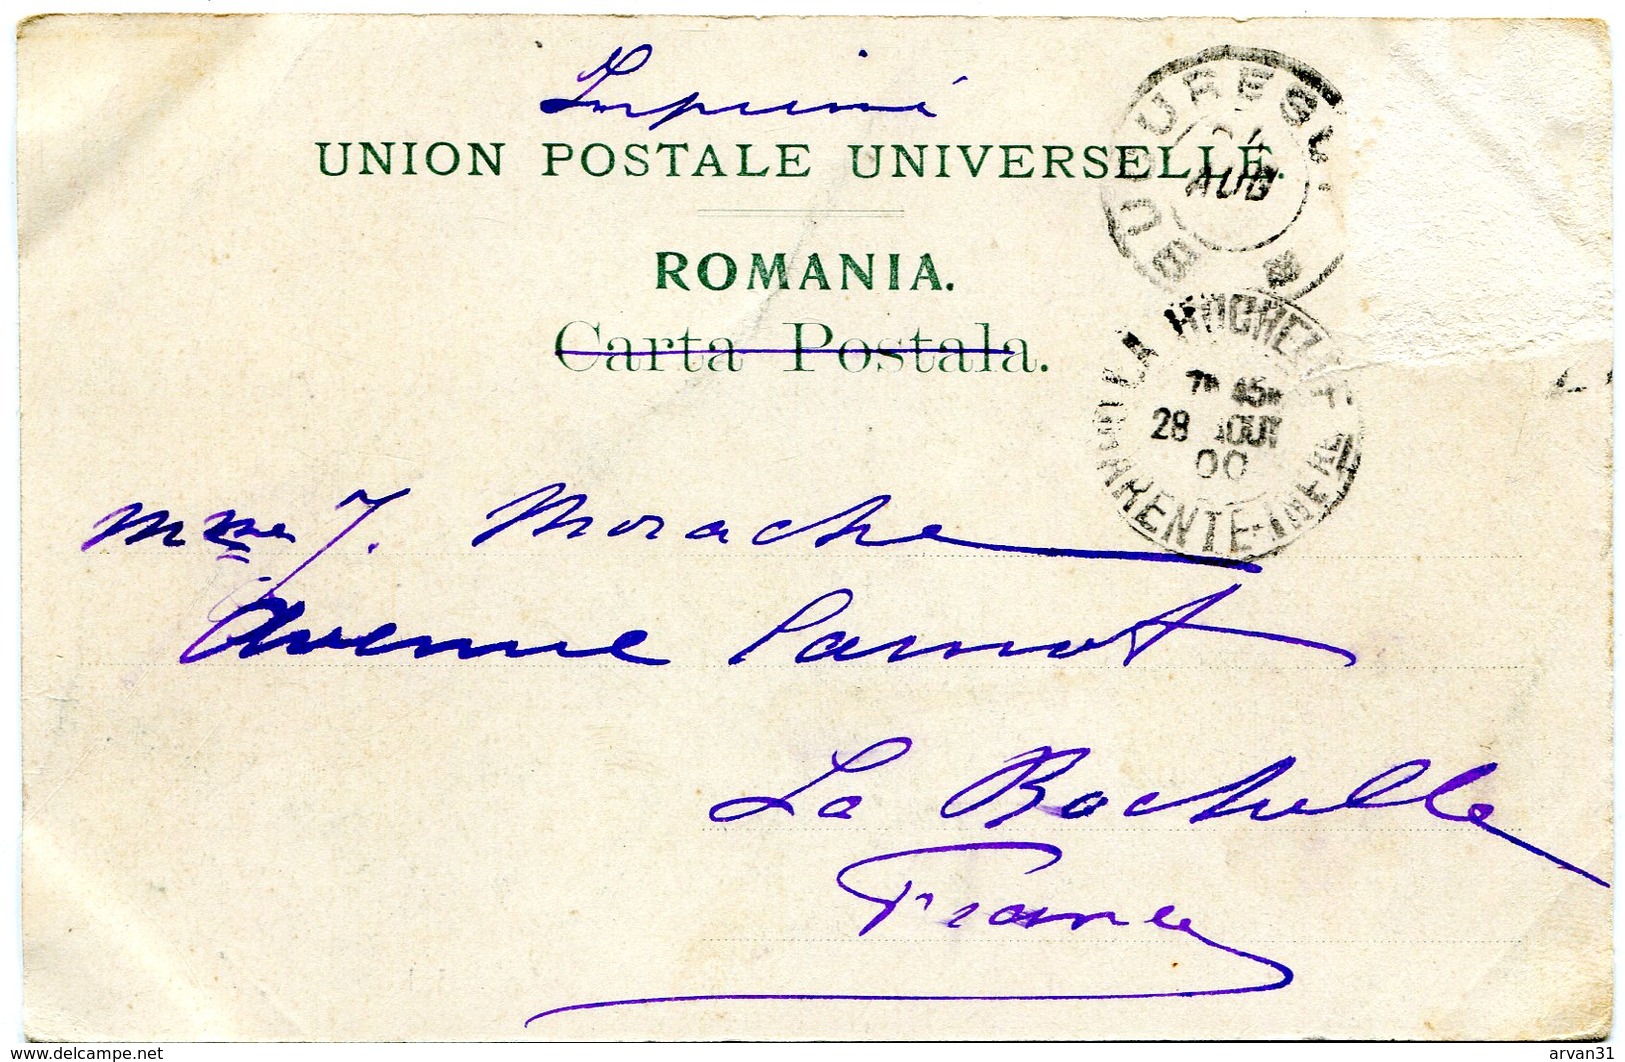 Imprimé
UNION POSTALE UNIVERSELLE.
ROMANIA.
Carta Postala.
BUCURESCI
AUG
LA ROCHELLE
7H 45M
28 AOUT
00
CHARENTE-INFRE
Mme J. Morache
Avenue Carnot
La Rochelle
France
www.delcampe.net
arvan31